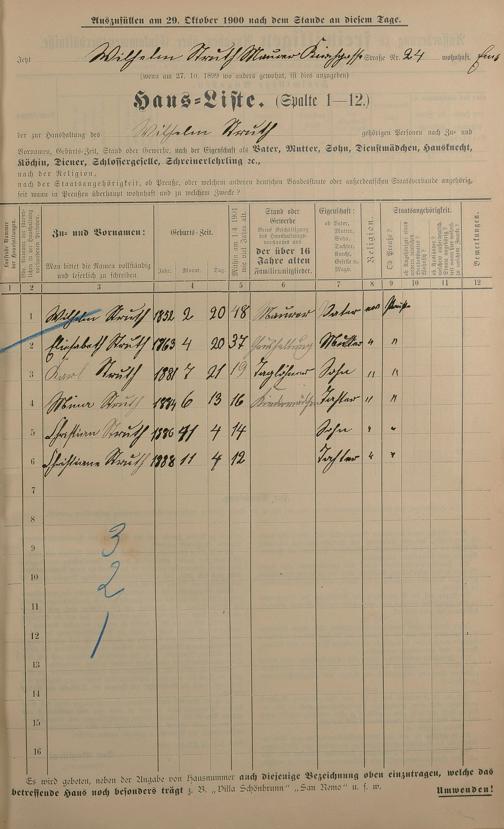 Auszufüllen am 29. Oktober 1900 nach dem Stande an diesem Tage.
Jetzt Wilhelm Struth Maurer Kirchgasse Straße Nr. 24 wohnhaft. Ems
(wenn am 27. 10. 1899 wo anders gewohnt, ist dies anzugeben)
Haus=Liste. (Spalte 1—12.)
der zur Haushaltung des Wilhelm Struth gehörigen Personen nach Zu- und
Vornamen, Geburts-Zeit, Stand oder Gewerbe, nach der Eigenschaft als Vater, Mutter, Sohn, Dienstmädchen, Hausknecht,
Köchin, Diener, Schlossergeselle, Schreinerlehrling ꝛc.,
nach der Religion,
nach der Staatsangehörigkeit, ob Preuße, oder welchem anderen deutschen Bundesstaate oder außerdeutschen Staatsverbande angehörig,
seit wann in Preußen überhaupt wohnhaft und zu welchem Zwecke?
Zu- und Vornamen:
Man bittet die Namen vollständig und leserlich zu schreiben
Geburts-Zeit.
Jahr. Monat. Tag.
Mithin am 1. 4. 1901 wie viel Jahre alt.
Stand oder Gewerbe
der über 16 Jahre alten Familienmitglieder.
Eigenschaft:
ob Vater, Mutter, Sohn, Tochter, Knecht, Geselle u. Magd.
Religion.
Staatsangehörigkeit.
Ob Preuße?
Bemerkungen.
1 2 3 4 5 6 7 8 9 10 11 12
1 Wilhelm Struth 1852 2 20 48 Maurer Vater ev. Preuße
2 Elisabeth Struth 1863 4 20 37 Haushaltung Mutter " "
3 Karl Struth 1881 7 21 19 Taglöhner Sohn " "
4 Mina Struth 1884 6 13 16 Kindermädchen Tochter " "
5 Christian Struth 1886 4 14 Sohn " "
6 Christiane Struth 1888 11 4 12 Tochter " "
7
8
9 3
10 2
11
12 1
13
14
15
16
Es wird gebeten, neben der Angabe von Hausnummer auch diejenige Bezeichnung oben einzutragen, welche das
betreffende Haus noch besonders trägt z. B. „Villa Schönbrunn" „San Remo" u. s. w. Umwenden!